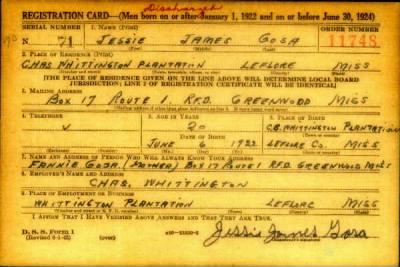 Discharged
REGISTRATION CARD—(Men born on or after January 1, 1922 and on or before June 30, 1924)
SERIAL NUMBER 1. NAME (Print) ORDER NUMBER
N 71 JESSIE JAMES GOSA 11748
2. PLACE OF RESIDENCE (Print)
CHAS WHITTINGTON PLANTATION LEFLORE MISS
[THE PLACE OF RESIDENCE GIVEN ON THE LINE ABOVE WILL DETERMINE LOCAL BOARD
JURISDICTION; LINE 2 OF REGISTRATION CERTIFICATE WILL BE IDENTICAL]
3. MAILING ADDRESS
BOX 17 ROUTE 1. RFD. GREENWOOD MISS
4. TELEPHONE 5. AGE IN YEARS 6. PLACE OF BIRTH
20 C.B. WHITTINGTON PLANTATION
DATE OF BIRTH
JUNE 6 1922 LEFLORE CO. MISS
7. NAME AND ADDRESS OF PERSON WHO WILL ALWAYS KNOW YOUR ADDRESS
FANNIE GOSA. (MOTHER) BOX 17 ROUTE 1 RFD. GREENWOOD MISS
8. EMPLOYER'S NAME AND ADDRESS
CHAS. WHITTINGTON
9. PLACE OF EMPLOYMENT OR BUSINESS
WHITTINGTON PLANTATION LEFLORE MISS
I AFFIRM THAT I HAVE VERIFIED ABOVE ANSWERS AND THAT THEY ARE TRUE.
D. S. S. Form 1
Jessie James Gosa